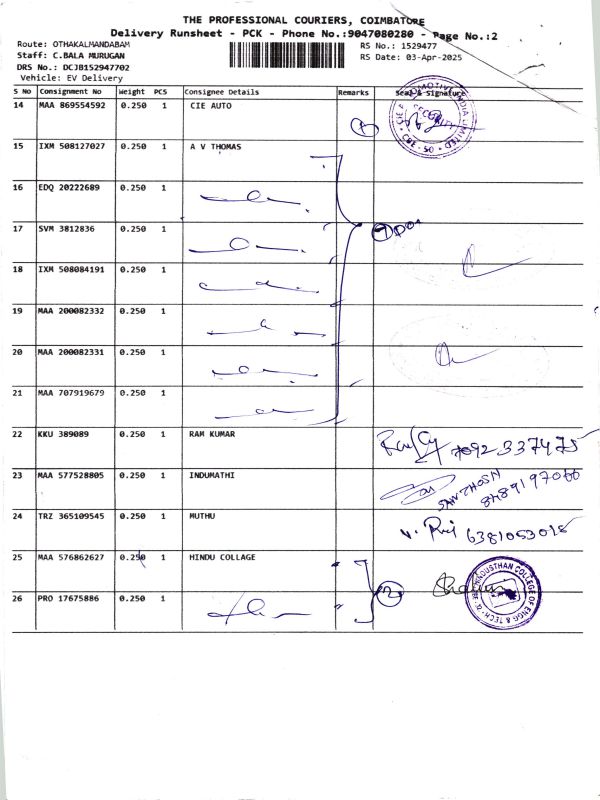 THE PROFESSIONAL COURIERS, COIMBATORE
Delivery Runsheet - PCK - Phone No.:9047080280 - Page No.:2
Route: OTHAKALMANDABAM
RS No.: 1529477
Staff: C.BALA MURUGAN
RS Date: 03-Apr-2025
DRS No.: DCJB152947702
Vehicle: EV Delivery
S No Consignment No Weight PCS Consignee Details Remarks Seal & Signature
14 MAA 869554592 0.250 1 CIE AUTO
SECURITY
15 IXM 508127027 0.250 1 A V THOMAS
16 EDQ 20222689 0.250 1
17 SVM 3812836 0.250 1
18 IXM 508084191 0.250 1
19 MAA 200082332 0.250 1
20 MAA 200082331 0.250 1
21 MAA 707919679 0.250 1
22 KKU 389089 0.250 1 RAM KUMAR 7092337475
23 MAA 577528805 0.250 1 INDUMATHI SANTHOSH 8489197060
24 TRZ 365109545 0.250 1 MUTHU 6381053015
25 MAA 576862627 0.250 1 HINDU COLLAGE
HINDUSTHAN COLLEGE OF ENGG & TECH
26 PRO 17675886 0.250 1
2